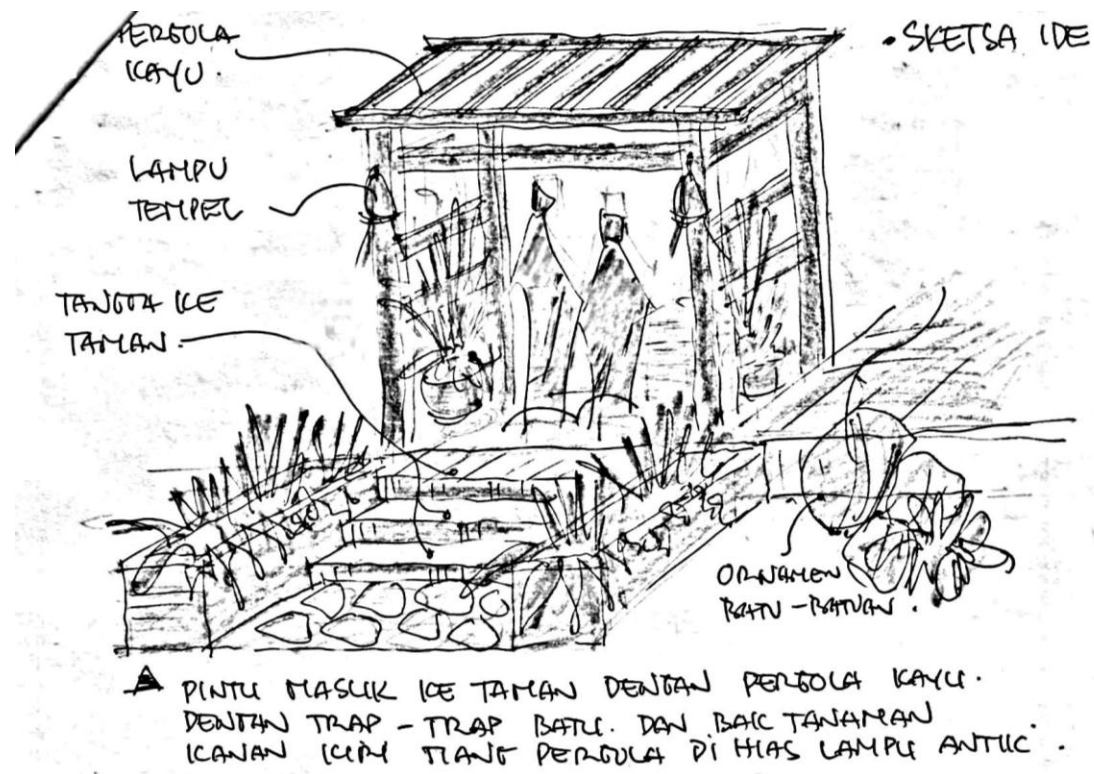 PERGOLA
KAYU.
• SKETSA IDE
LAMPU
TEMPEL
TANGGA KE
TAMAN.
ORNAMEN
BATU-BATUAN.
PINTU MASUK KE TAMAN DENGAN PERGOLA KAYU.
DENGAN TRAP-TRAP BATU. DAN BAK TANAMAN
KANAN KIRI TIANG PERGOLA DI HIAS LAMPU ANTIK.